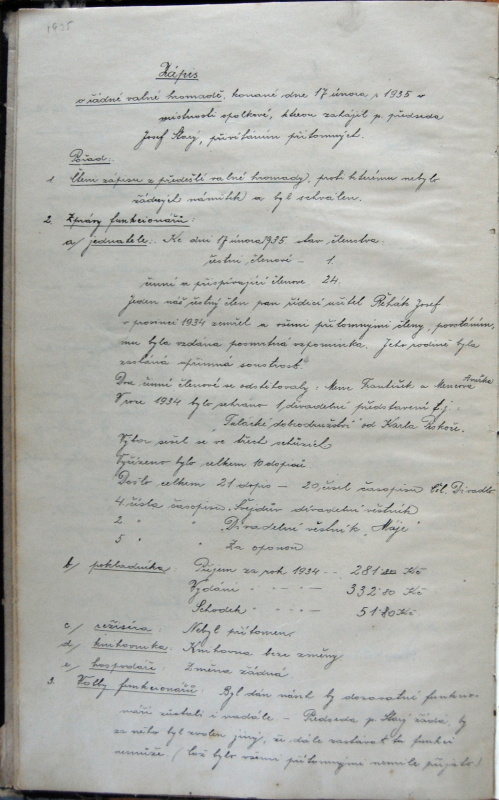 1935
Zápis
o řádné valné hromadě, konané dne 17 února r 1935 v
místnosti spolkové, kterou zahájil p. předseda
Josef Starý, přivítáním přítomných.
Pořad:
1 Čtení zápisu z předešlé valné hromady, proti kterému nebylo
žádných námitek a byl schválen.
2. Zprávy funkcionářů:
a/ jednatele: Ke dni 17 února 1935 stav členstva:
čestní členové – 1.
činní a přispívající členové 24.
Jeden náš čestný člen pan řídící učitel Řehák Josef
v prosinci 1934 zemřel a všemi přítomnými členy, povstáním,
mu byla vzdána posmrtná vzpomínka. Jeho rodině byla
zaslána upřímná soustrast.
Dva činní členové se odstěhovaly: Menc František a Mencová Anežka
V roce 1934 bylo sehráno 1 divadelní představení t.j.
"Palackého dobrodružství" od Karla
Výbor sešel se ve třech schůzích
Vyřízeno bylo celkem 10 dopisů.
Došlo celkem 21 dopis – 20 čísel časopisu Čsl. Divadlo
4. čísla časopisu, Švejdův divadelní věstník
2 " " Divadelní věstník "Máje"
5 " " Za oponou
b/ pokladníka: Příjem za rok 1934 – – 281·20 Kč
Vydání – – – 332·80 Kč
Schodek – – 51·80 Kč
c/ režiséra: Nebyl přítomen
d/ knihovníka: Knihovna beze změny
e/ hospodáře: Změna žádná
3. Volby funkcionářů: Byl dán návrh by dosavadní funkcio-
náři zůstali i nadále – Předseda p. Starý žádá, by
za něho byl zvolen jiný, že dále zastávat tu funkci
nemůže (což bylo všemi přítomnými nemile přijato)